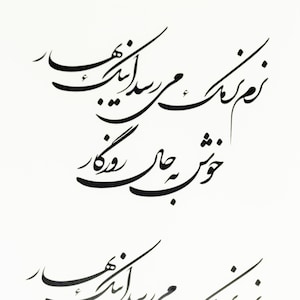 نرم نرمک می رسد اینک بهار
خوش به حال روزگار
نرم نرمک می رسد اینک بهار